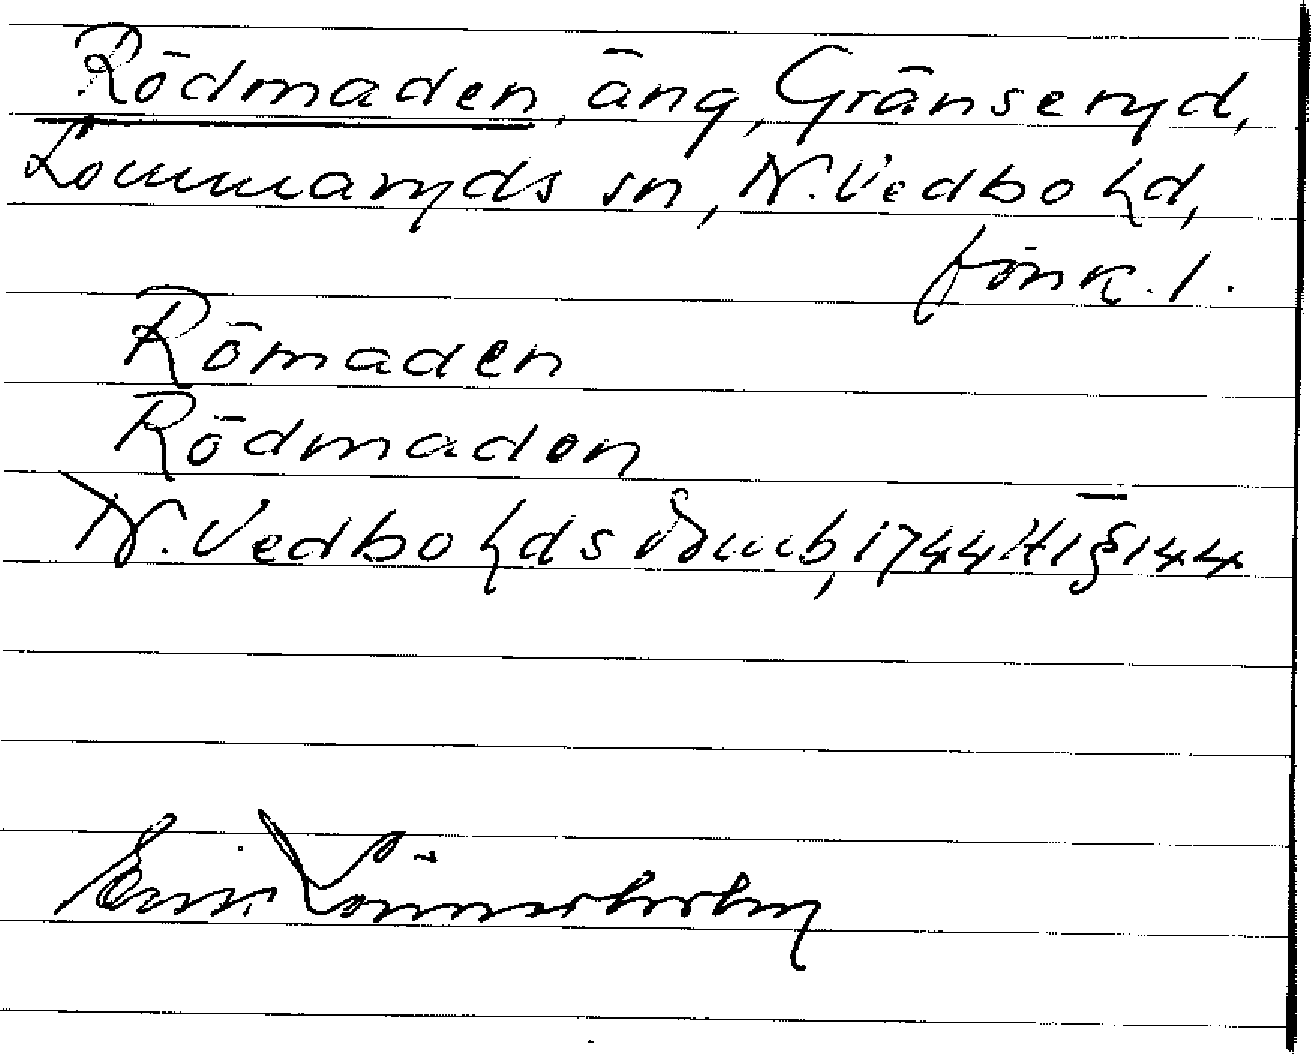 Rödmaden, äng, Gränseryd,
Lommaryds sn, N. Vedbo hd,
Jönk. l.
Römaden
Rödmaden
N. Vedbo hds domb, 1744 H1 § 144
Erik Lönnerholm